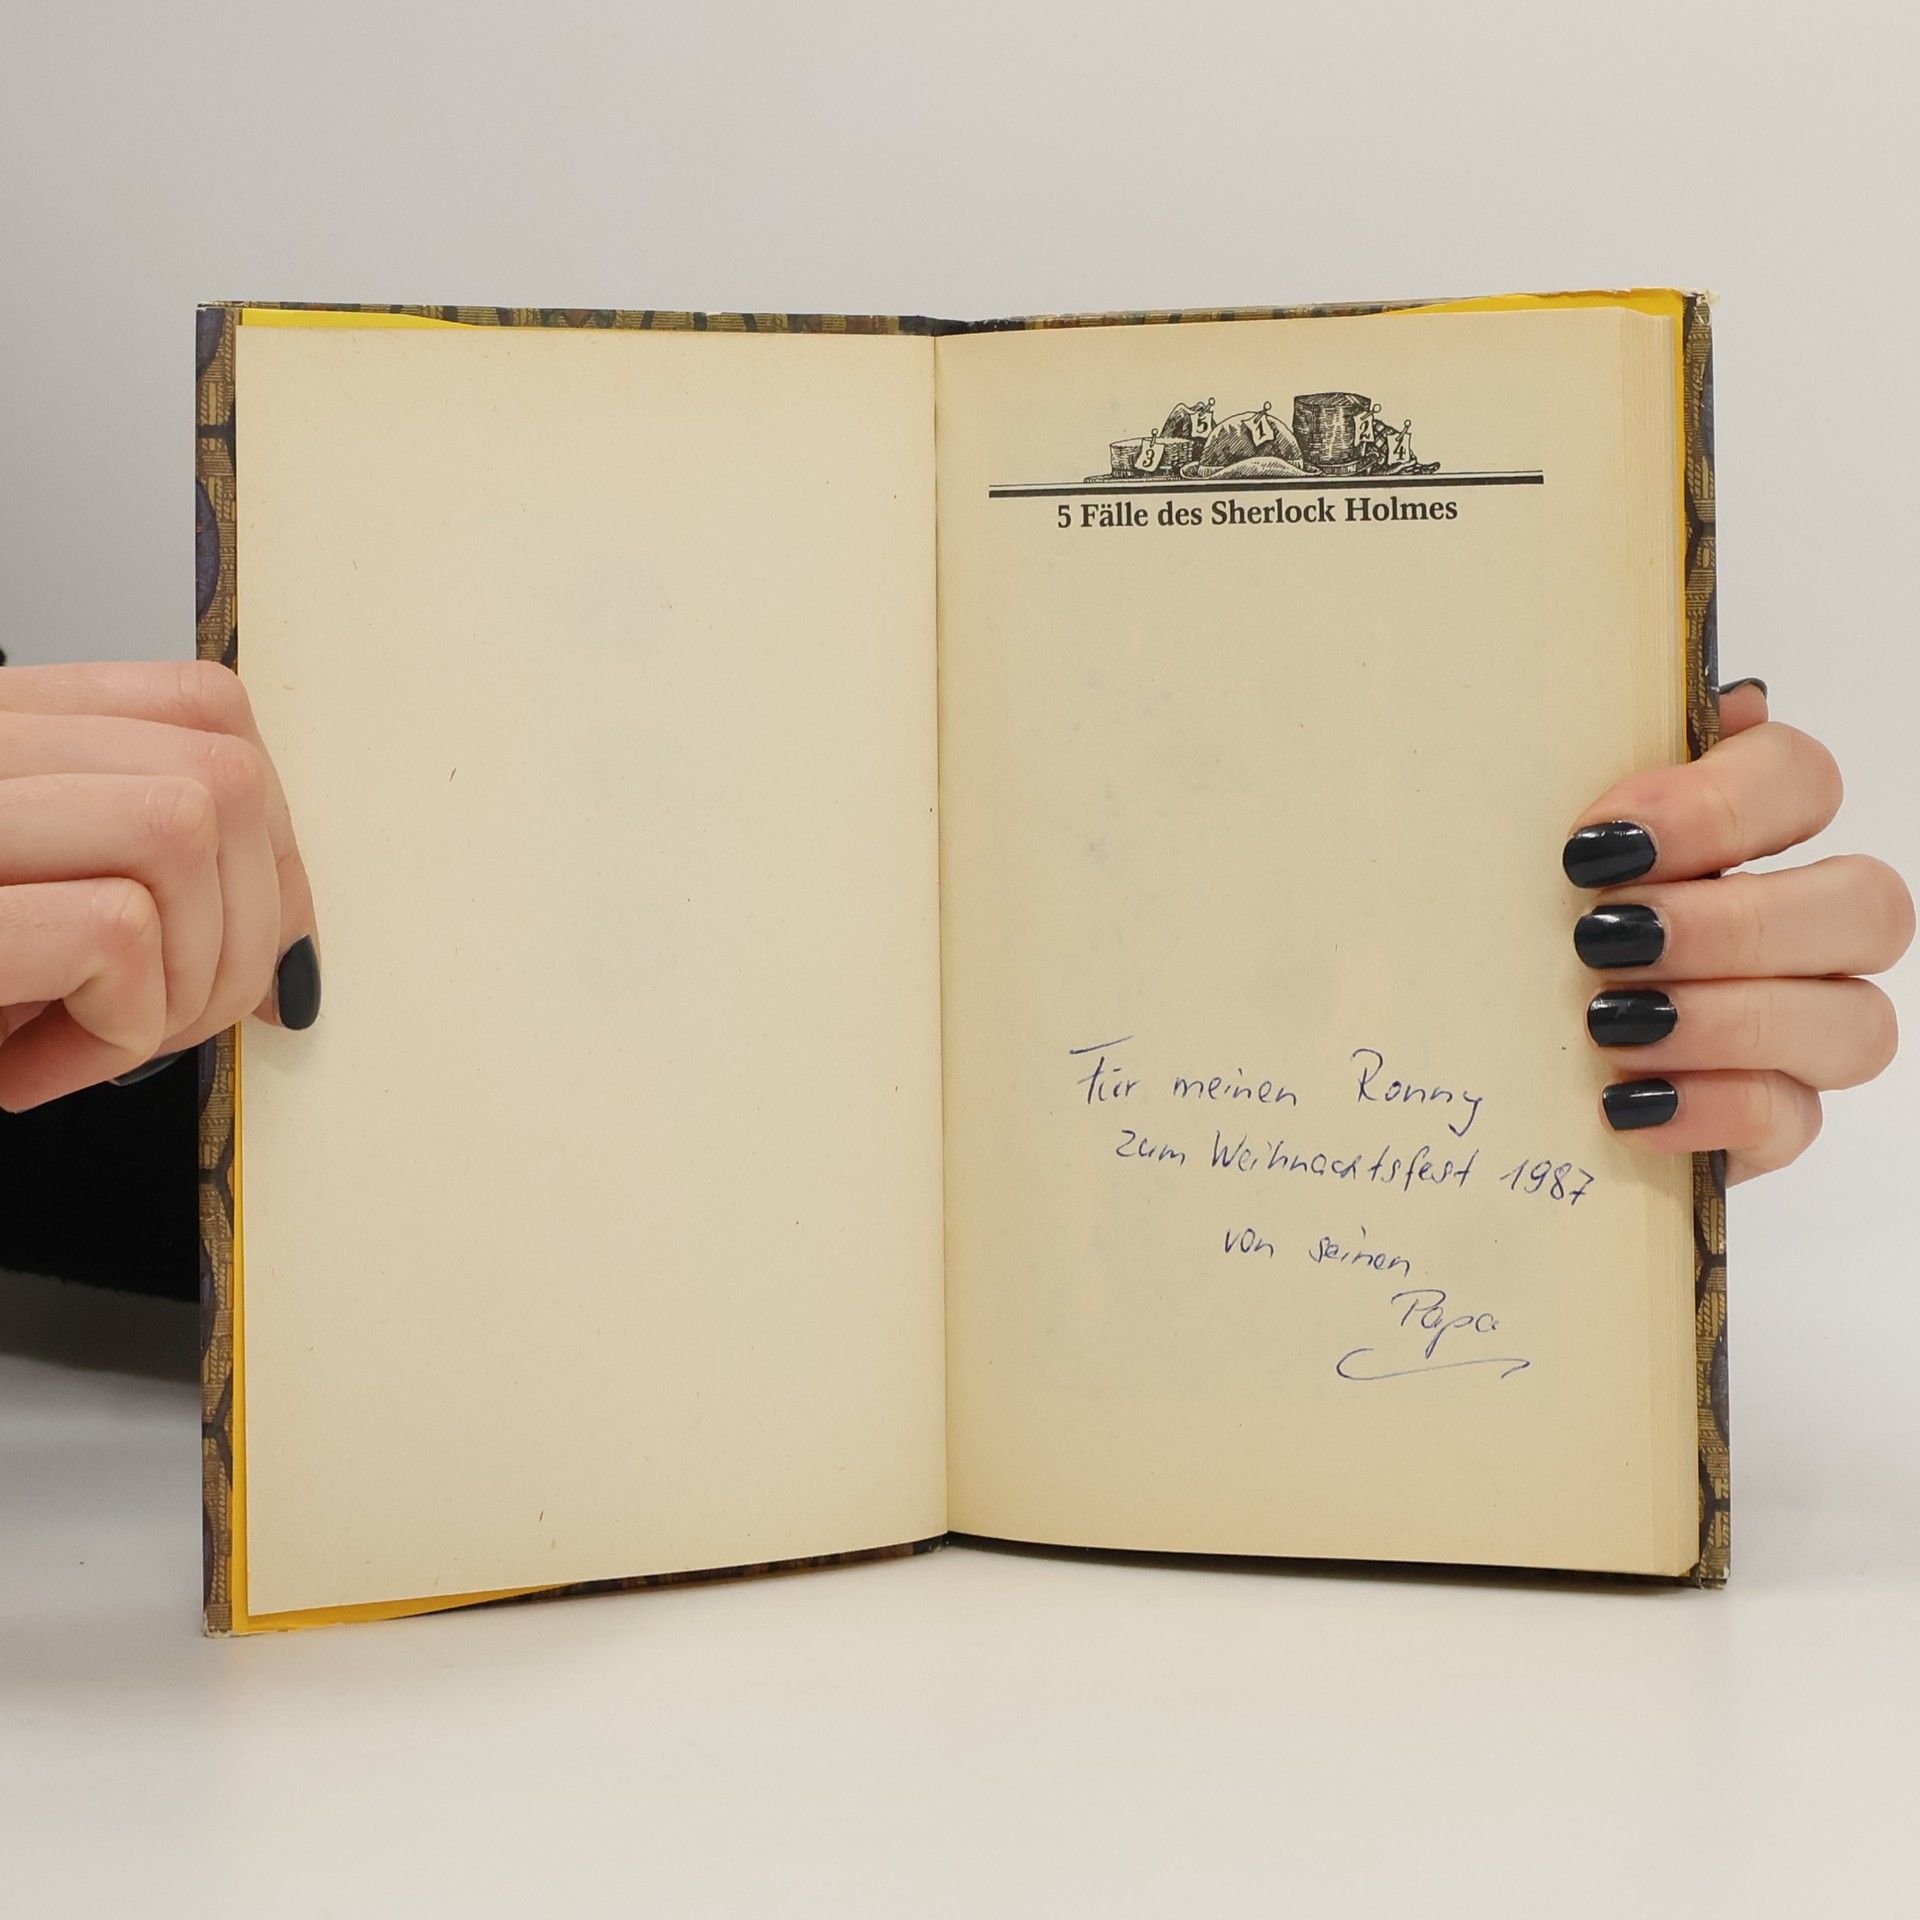 3 5 1 2 4
5 Fälle des Sherlock Holmes
Für meinen Ronny
zum Weihnachtsfest 1987
von seinen
Papa